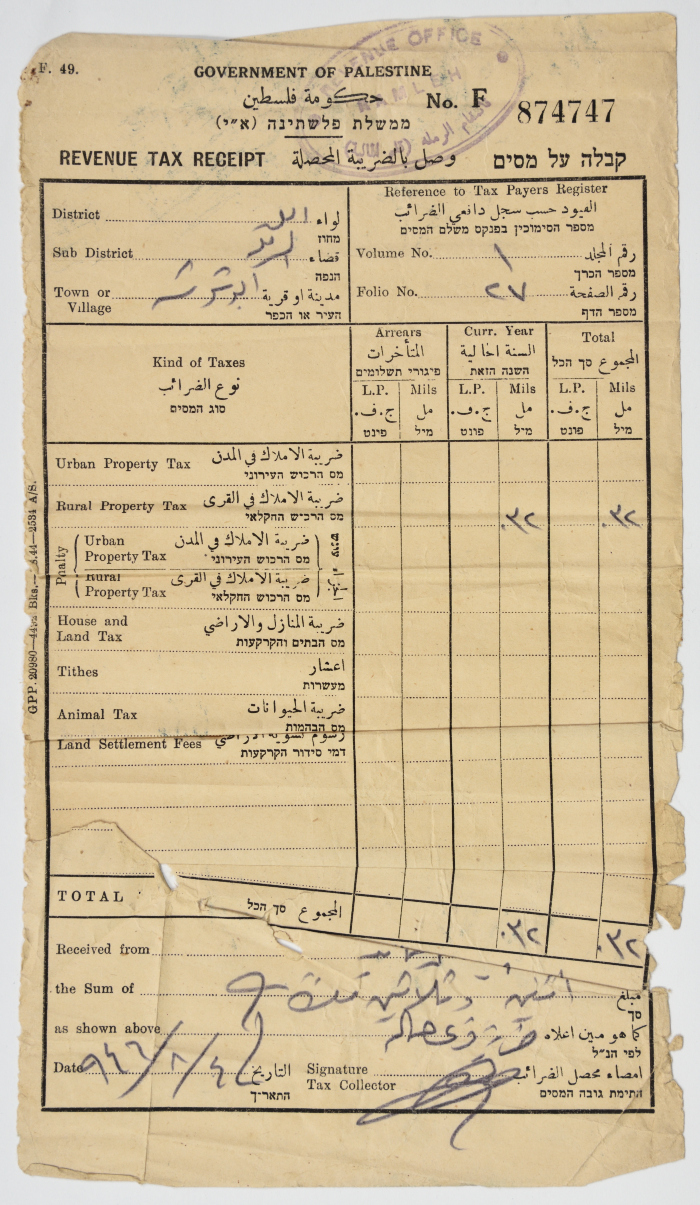 F. 49.
REVENUE OFFICE
RAMLEH
GOVERNMENT OF PALESTINE
حكومة فلسطين
No. F 874747
ממשלת פלשתינה (א״י)
REVENUE TAX RECEIPT وصل بالضريبة المحصلة קבלה על מסים
District لواء اللد
מחוז
Sub District قضاء الرملة
הנפה
Town or Village مدينة او قرية
העיר או הכפר
Reference to Tax Payers Register
القيود حسب سجل دافعي الضرائب
מספר הסימוכין בפנקס משלם המסים
Volume No. ١ رقم المجلد
מספר הכרך
Folio No. ٢٧ رقم الصفحة
מספר הדף
Kind of Taxes
نوع الضرائب
סוג המסים
Arrears
المتأخرات
פיגורי תשלומים
Curr. Year
السنة الحالية
השנה הזאת
Total
المجموع סך הכל
L.P. Mils L.P. Mils L.P. Mils
ج.ف. مل ج.ف. مل ج.ف. مل
פונט מיל פונט מיל פונט מיל
Urban Property Tax ضريبة الاملاك في المدن
מס הרכוש העירוני
Rural Property Tax ضريبة الاملاك في القرى
מס הרכוש החקלאי
٠٣٢ ٠٣٢
Pnalty
Urban Property Tax ضريبة الاملاك في المدن
מס הרכוש העירוני
Rural Property Tax ضريبة الاملاك في القرى
מס הרכוש החקלאי
עונש
House and Land Tax ضريبة المنازل والاراضي
מס הבתים והקרקעות
Tithes اعشار
מעשרות
Animal Tax ضريبة الحيوانات
מס הבהמות
Land Settlement Fees رسوم تسوية الاراضي
דמי סידור הקרקעות
TOTAL המגموع סך הכל
٠٣٢ ٠٣٢
Received from
the Sum of مبلغ اثنين وثلاثين
סך
as shown above كما هو مبين اعلاه
לפי הנ״ל
Date ٩٤٦/٨/٤ التاريخ
התאריך
Signature Tax Collector امضاء محصل الضرائب
חתימת גובה המסים
GPP. 20980—44 Bks.—8.44—2534 A/S.